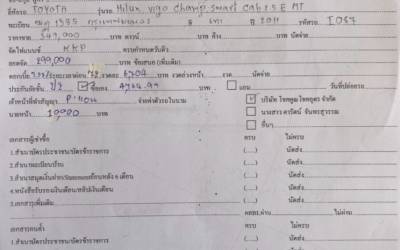 ยี่ห้อรถ TOYOTA รุ่นรถ Hilux vigo Champ smart Cab 2.5 E MT
ทะเบียน 1335 กรุงเทพมหานคร สี เทา ปี 2011 รหัสรถ I087
ราคาขาย 349,000 บาท ดาวน์ บาท ค้าง บาท นัดจ่าย
จัดไฟแนนซ์ KKP ครบกำหนดวันที่
ยอดจัด 299,000 บาท ข้อเสนอ (เพิ่มเติม)
ดอกเบี้ย ระยะเวลาผ่อน งวดละ 6704 บาท งวดล่วงหน้า งวด นัดจ่าย
ประกันภัยชั้น ซื้อเอง บาท แถม วันที่ปล่อยรถ
เจ้าหน้าที่ทำสัญญา จ่ายค่าตัวรถในนาม บริษัท โชคพูลโชคอุดร จำกัด
นายหน้า 10000 บาท นางสาว ดารัตน์ จันทรสุวรรณ
อื่นๆ
เอกสารผู้เช่าซื้อ ครบ ไม่ครบ
1.สำเนาบัตรประชาชน/บัตรข้าราชการ (....) นัดส่ง
2.สำเนาทะเบียนบ้าน (....) นัดส่ง
3.สำเนาสมุดเงินฝาก/Statementย้อนหลัง 6 เดือน (....) นัดส่ง
4.หนังสือรับรองเงินเดือน/สลิปเงินเดือน (....) นัดส่ง
5.เอกสารเพิ่มเติม ผ่าน ไม่ผ่าน
เอกสารคนค้ำ ครบ ไม่ครบ
1.สำเนาบัตรประชาชน/บัตรข้าราชการ (....) นัดส่ง